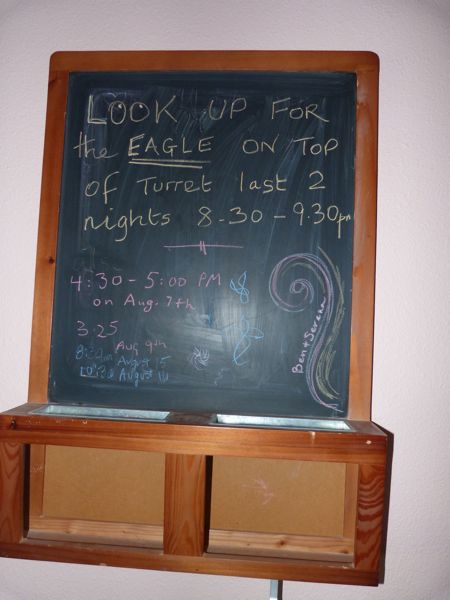 LOOK UP FOR
the EAGLE ON TOP
of Turret last 2
nights 8-30 - 9.30pm
4:30 - 5:00 PM
on Aug. 7th
3.25
Aug 9th
August 15
August
Ben + Serena